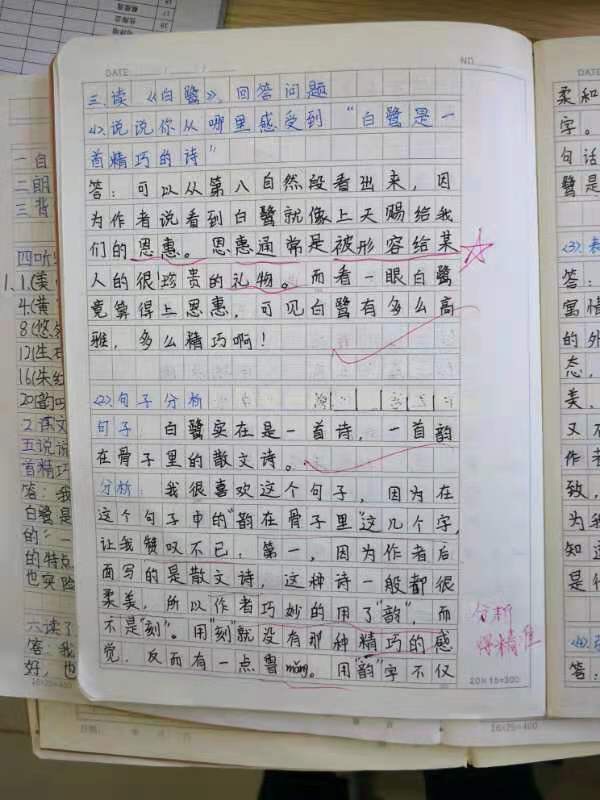 DATE
NO
三.读《白鹭》,回答问题
(1).说说你从哪里感受到“白鹭是一
首精巧的诗”
答:可以从第八自然段看出来,因
为作者说看到白鹭就像上天赐给我
们的恩惠。恩惠通常是被形容给某
人的很珍贵的礼物。而看一眼白鹭
竟算得上恩惠,可见白鹭有多么高
雅,多么精巧啊!
(2)句子分析
句子 白鹭实在是一首诗,一首韵
在骨子里的散文诗。
分析: 我很喜欢这个句子,因为在
这个句子中的“韵在骨子里”这几个字,
让我赞叹不已.第一,因为作者后
面写的是散文诗,这种诗一般都很
柔美,所以作者巧妙的用了“韵”,而
不是“刻”。用“刻”就没有那种精巧的感
觉,反而有一点 mǎng。用“韵”字不仅
分析
得精准
20×15=300
一自
二朗
三背
四听
1.(美
4.(黄
8(悠
12(生
16(朱
20(韵
2.课文
五说说
首精巧
答:我
白鹭是
的:“一
的特点
也实险
六读了
答:我
好,也
柔和
字。
句话
鹭是
(3).
答:
寓情
的外
态,
美、
又不
作者
致,
为我
知道
是什
答:
16×25=400
日期: